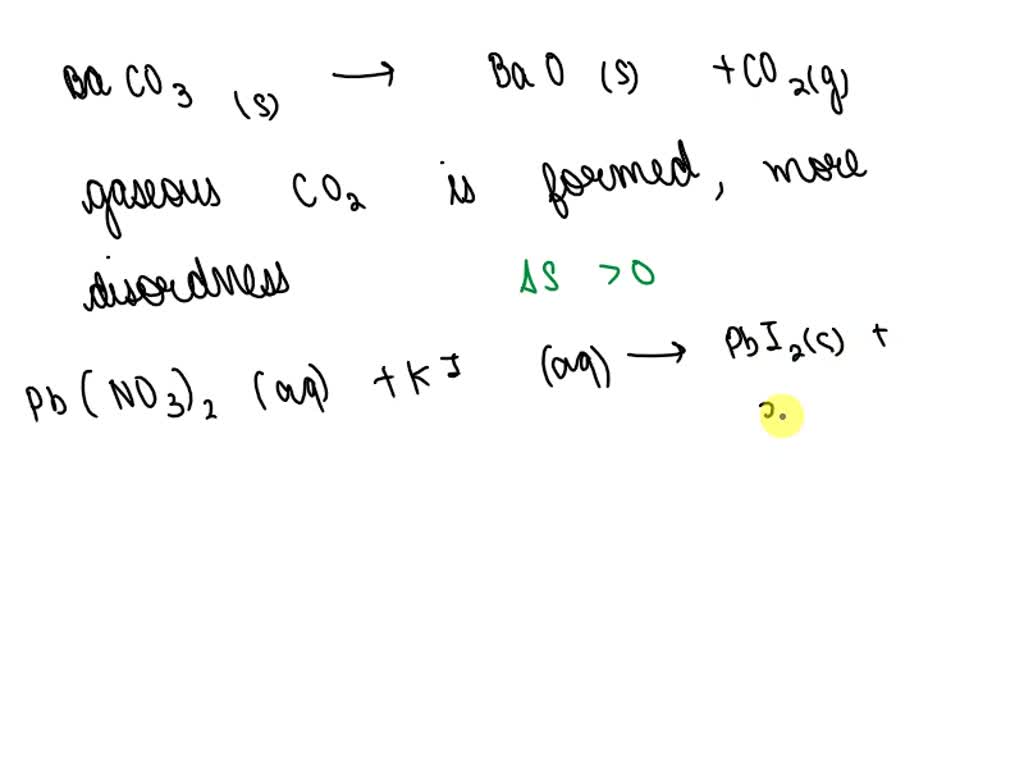 BaCO3 (s) → BaO (s) + CO2(g)
gaseous CO2 is formed, more
disordness ΔS > 0
Pb(NO3)2 (aq) + KI (aq) → PbI2(s) +